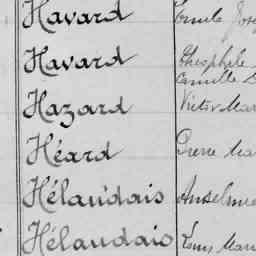 Havard Emile Jose
Havard Théophile
Camille
Hazard Victor Mar
Héard Pierre Ma
Hélaudais Anselme
Hélaudais Louis Mari